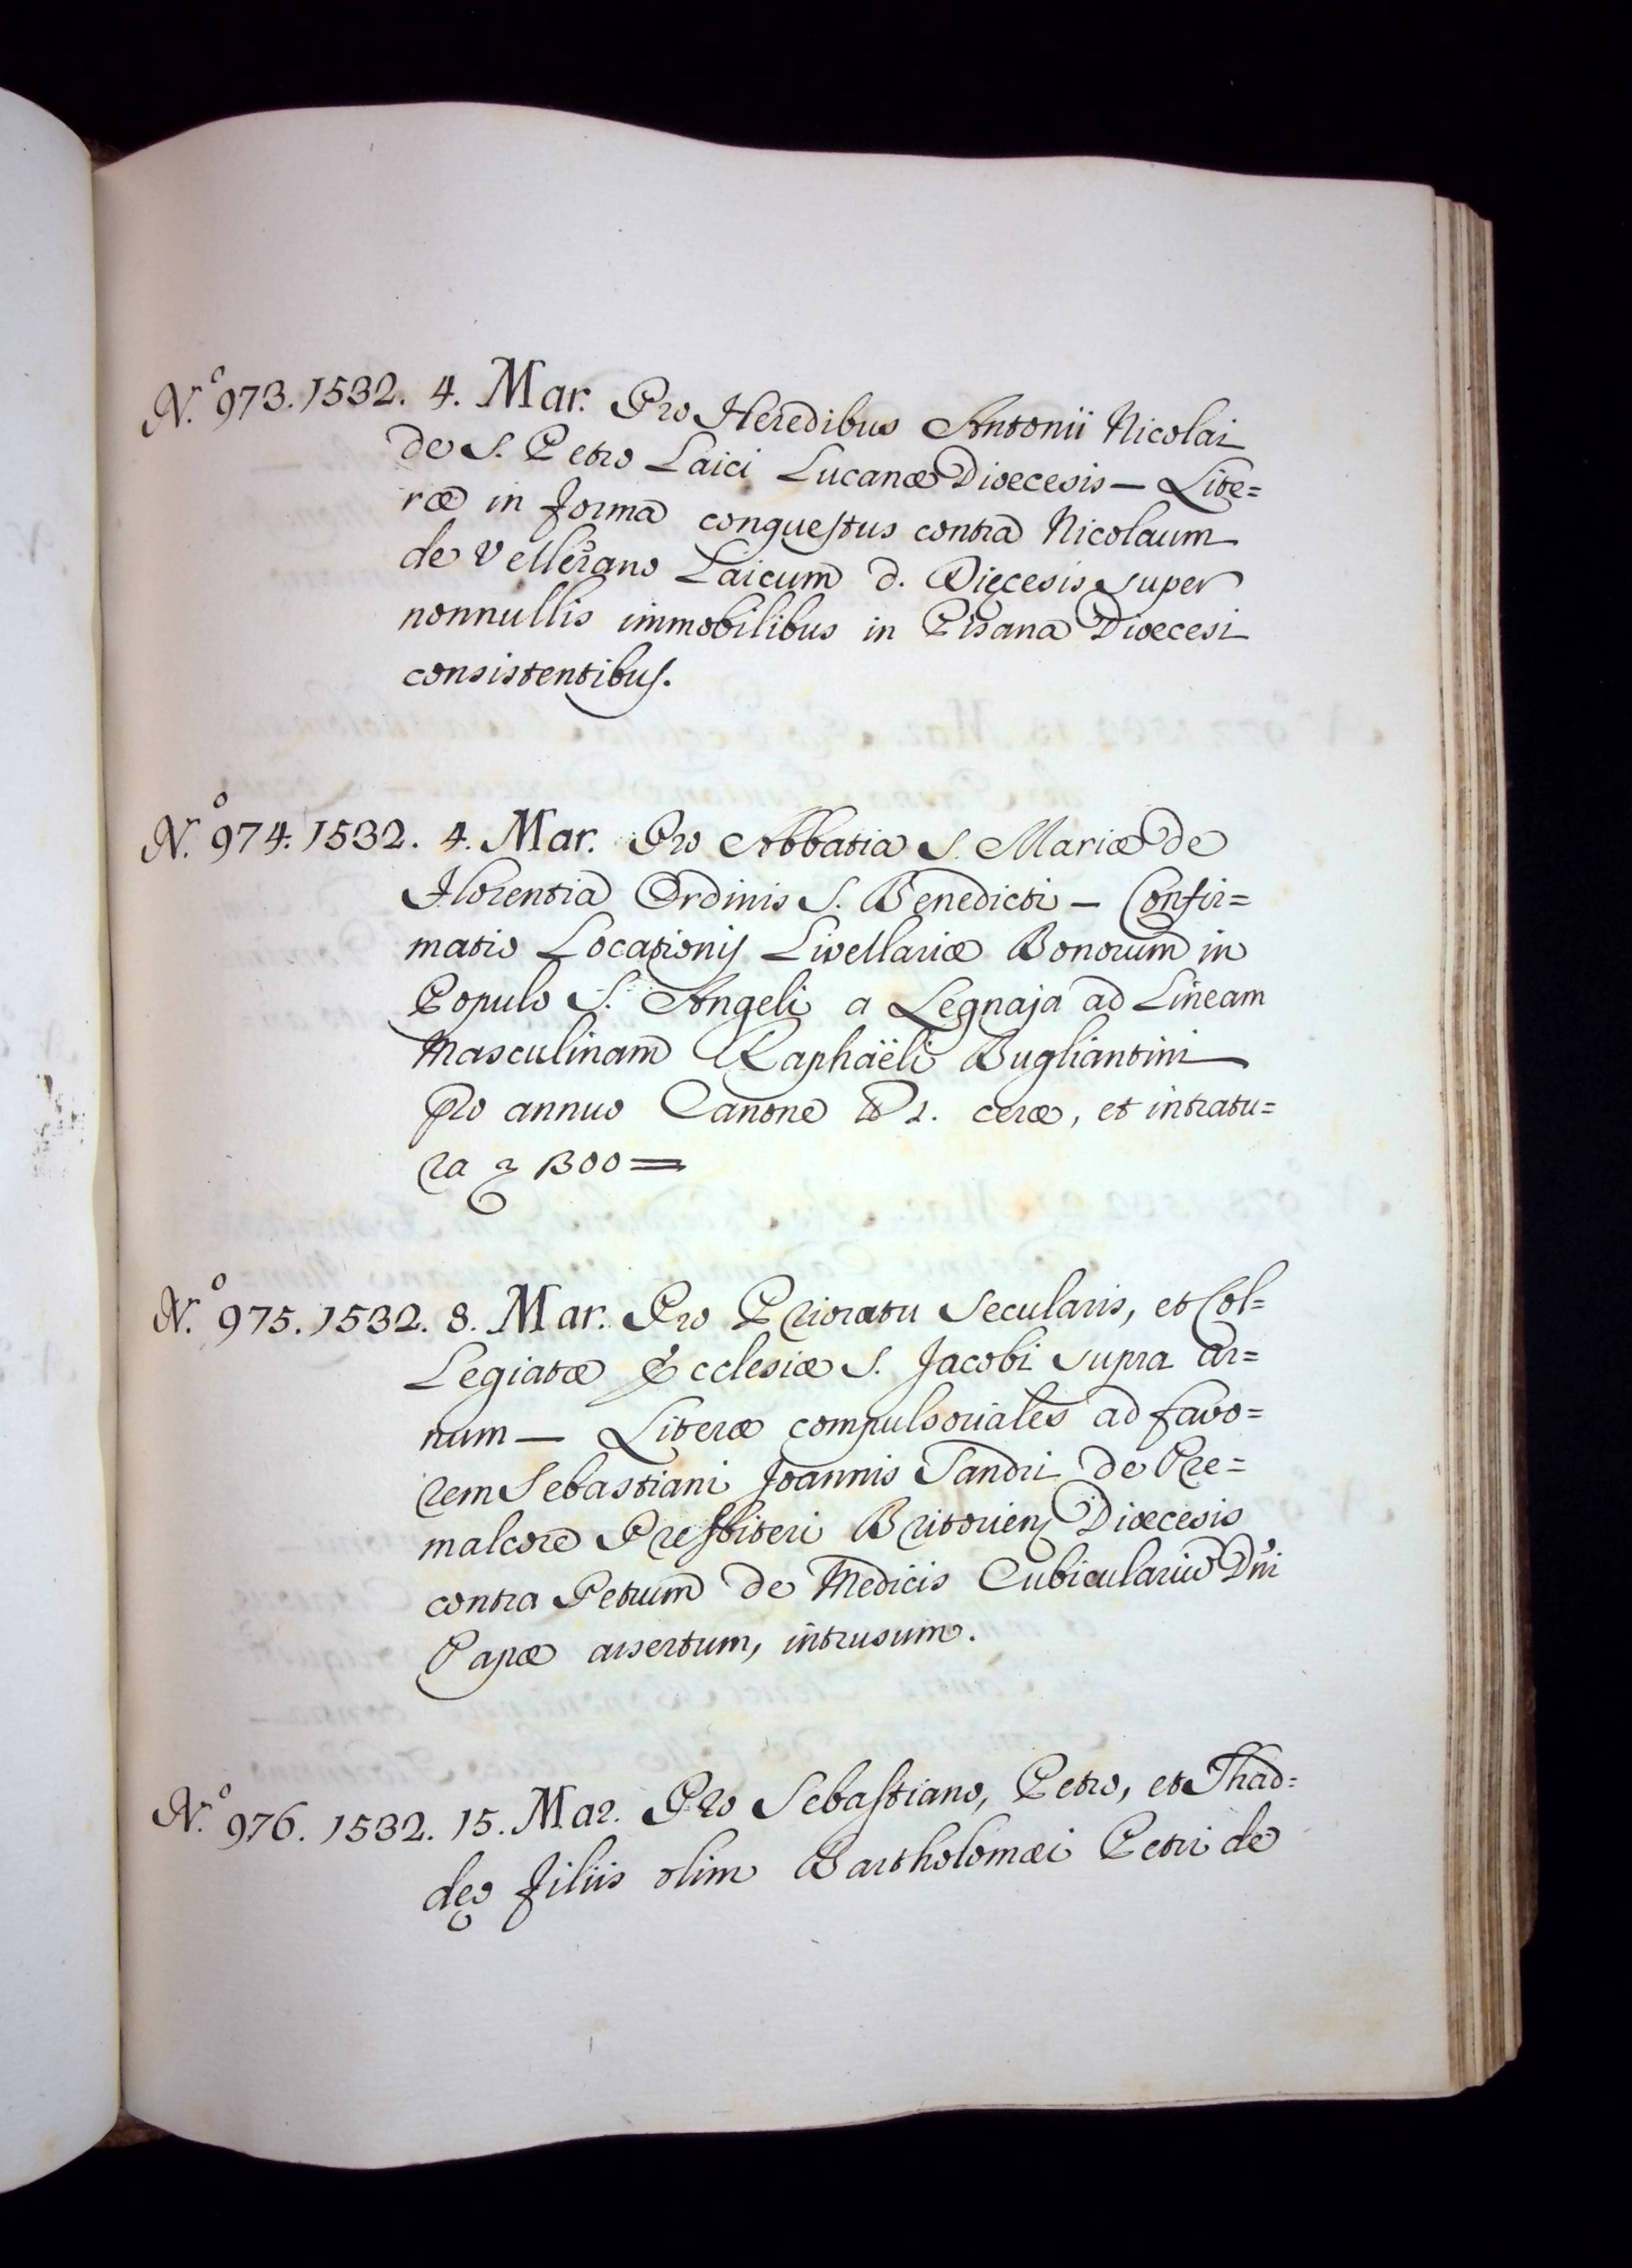 N.º 973. 1532. 4. Mar. Pro Heredibus Antonii Nicolai
de S. Petro Laici Lucanæ Diœcesis — Lite=
ræ in forma conquestus contra Nicolaum
de Vellerano Laicum d. Diecesis super
nonnullis immobilibus in Pisana Diœcesi
consistentibus.
N.º 974. 1532. 4. Mar. Pro Abbatia S. Mariæ de
Florentia Ordinis S. Benedicti — Confir=
matio Locationis Livellariæ Bonorum in
Populo S. Angeli a Legnaja ad Lineam
Masculinam Raphaëli Bugliantini
pro annuo Canone 1. ceræ, et intratu=
ra 1300 =
N.º 975. 1532. 8. Mar. Pro Prioratu Secularis, et Col=
Legiatæ Ecclesiæ S. Jacobi supra Ar=
num — Literæ compulsoriales ad favo=
rem Sebastiani Joannis Sandri de Pre=
malcore Presbiteri Britoriens Diœcesis
contra Petrum de Medicis Cubicularium Dñi
Papæ assertum, intrusum.
N.º 976. 1532. 15. Mar. Pro Sebastiano, Petro, et Thad=
deo filiis olim Bartholomæi Petri de